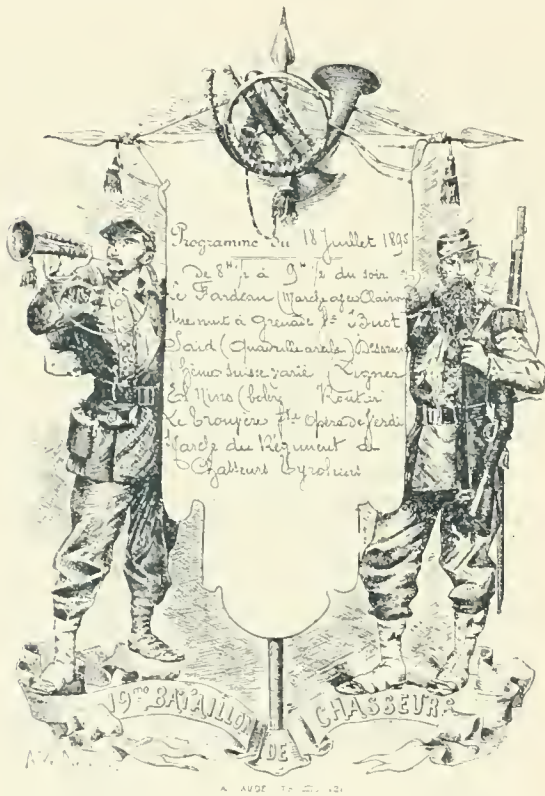 Programme du 18 Juillet 1895
De 8H 1/2 à 9H 1/2 du soir
Le Fardeau (Marche avec Clairons
Une nuit à Grenade Fsie Buot
Saïd (Quadrille arabe)
Thème Suisse varié
El Nino (boléro
Le Trouvère Fsie Opéra de Verdi
Marche du Régiment de
Chasseurs Tyroliens
19me BATAILLON DE CHASSEURS